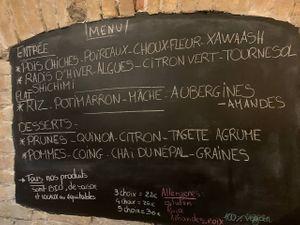 MENU
ENTRÉE
* POIS CHICHES - POIREAUX - CHOUX FLEUR - XAWAASH
* RADIS D'HIVER - ALGUES - CITRON VERT - TOURNESOL
- SHICHIMI
PLAT
* RIZ - POTIMARRON - MÂCHE - AUBERGINES
- AMANDES
DESSERTS -
* PRUNES - QUINOA - CITRON - TAGETE AGRUME
* POMMES - COING - CHAÏ DU NÉPAL - GRAINES
→ Tous nos produits
sont BIO, de saison
et locaux ou équitables
3 choix = 28€
4 choix =
5 choix = 36€
Allergènes
gluten
Soja
Amandes, noix
100% végétal